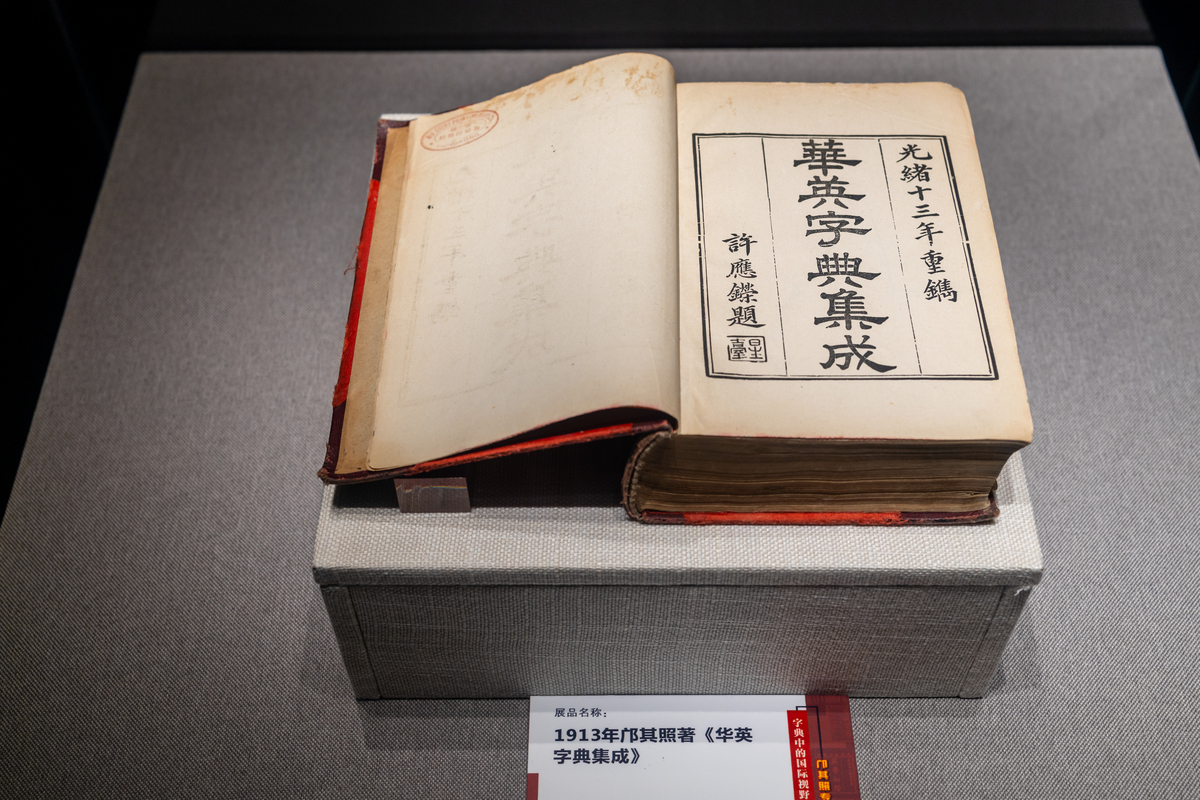 光緒十三年重鐫
華英字典集成
許應鑅題
星臺
展品名称：
1913年邝其照著《华英
字典集成》
字典中的国际视野
邝其照